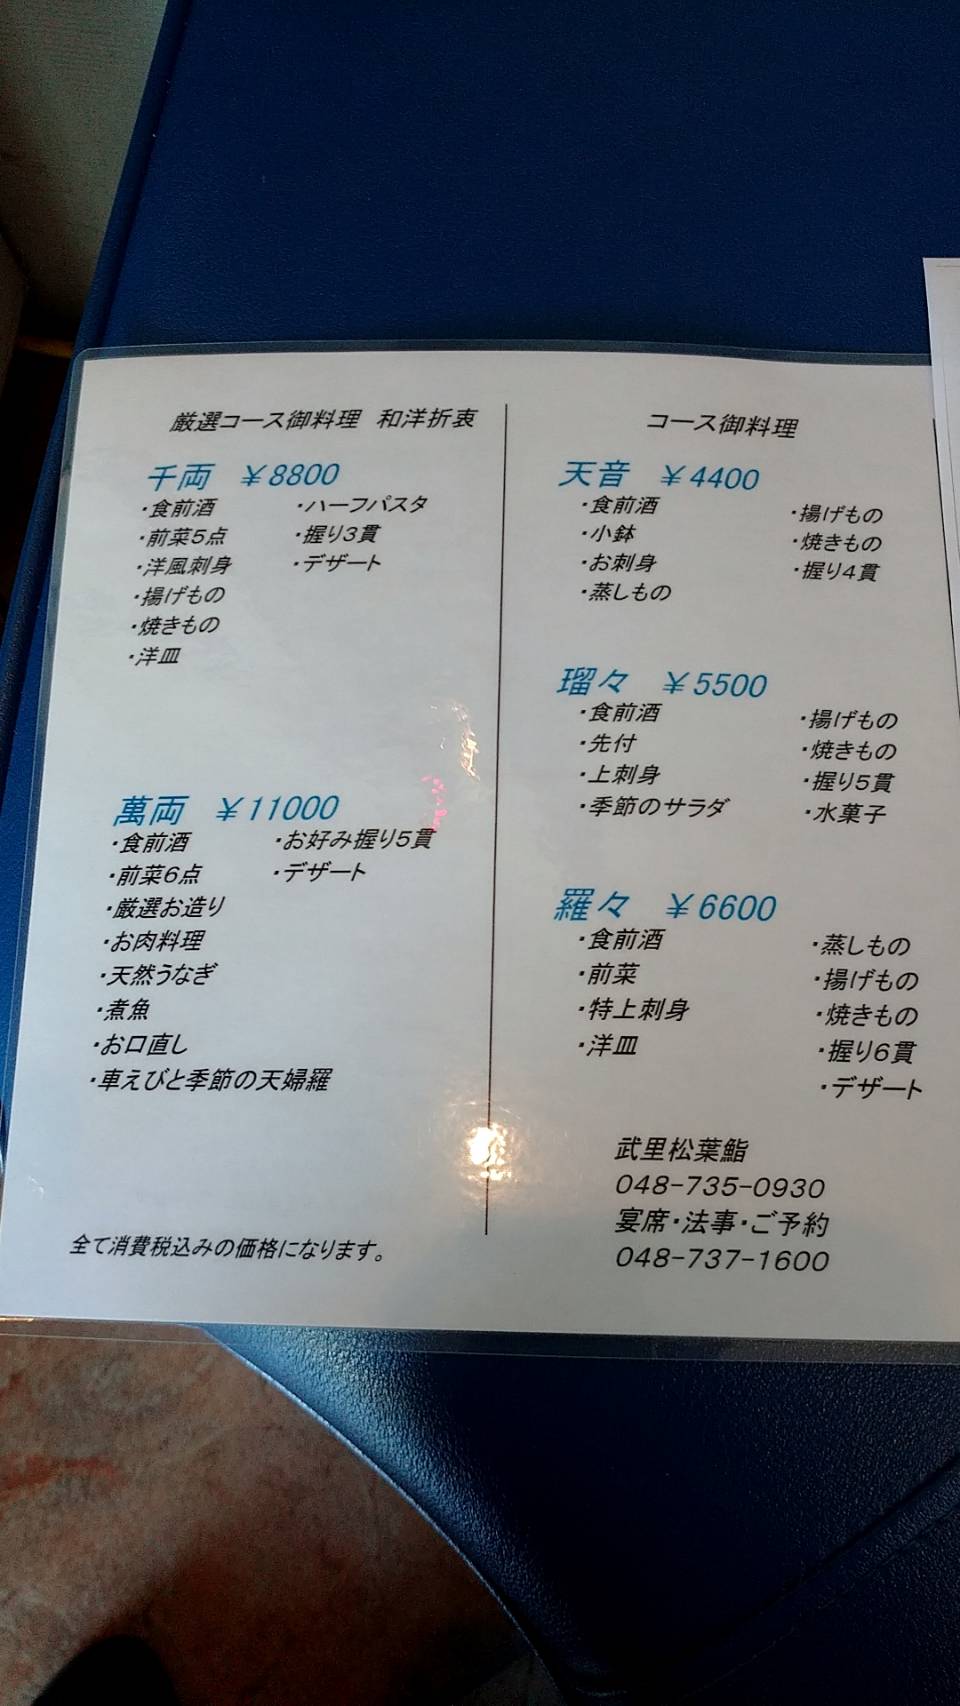 厳選コース御料理　和洋折衷
千両　￥8800
・食前酒
・前菜５点
・洋風刺身
・揚げもの
・焼きもの
・洋皿
・ハーフパスタ
・握り３貫
・デザート
萬両　￥11000
・食前酒
・前菜６点
・厳選お造り
・お肉料理
・天然うなぎ
・煮魚
・お口直し
・車えびと季節の天婦羅
・お好み握り５貫
・デザート
全て消費税込みの価格になります。
コース御料理
天音　￥4400
・食前酒
・小鉢
・お刺身
・蒸しもの
・揚げもの
・焼きもの
・握り４貫
瑠々　￥5500
・食前酒
・先付
・上刺身
・季節のサラダ
・揚げもの
・焼きもの
・握り５貫
・水菓子
羅々　￥6600
・食前酒
・前菜
・特上刺身
・洋皿
・蒸しもの
・揚げもの
・焼きもの
・握り６貫
・デザート
武里松葉鮨
048-735-0930
宴席・法事・ご予約
048-737-1600